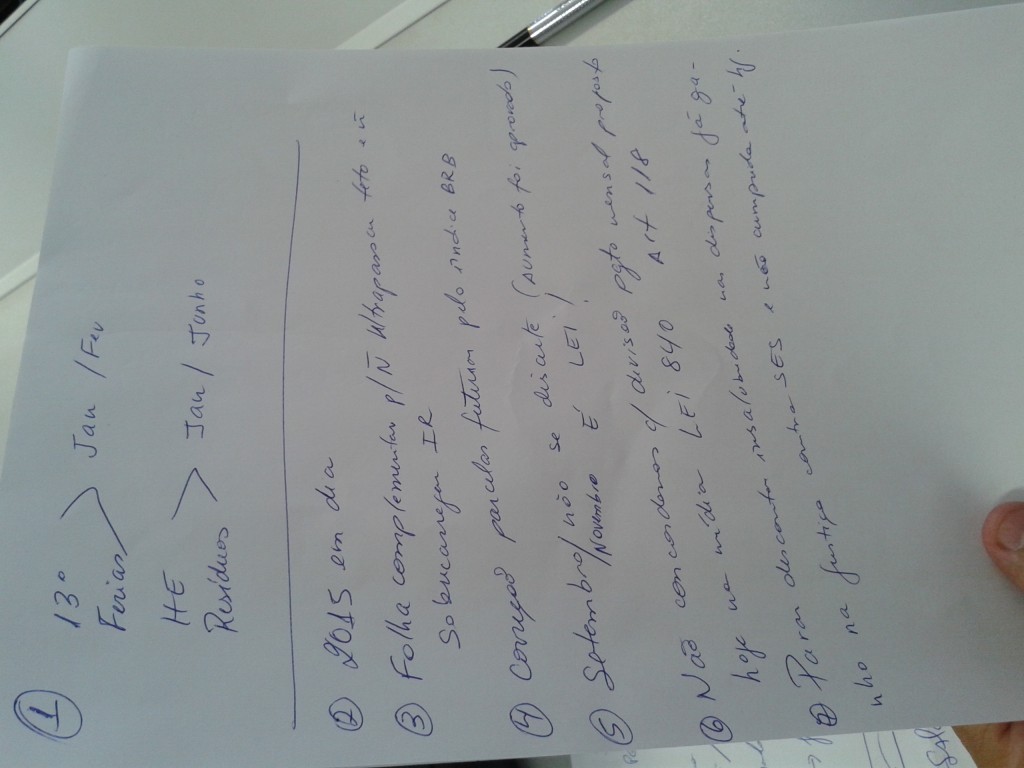 1
13º
Ferias > Jan / Fev
HE
Resíduos > Jan / Junho
2 2015 em dia
3 Folha complementar p/ Ñ ultrapassar teto e ñ
Sobrecarregar IR
4 Correção parcelas futuras pelo índice BRB
5 Setembro/ não se discute (Aumento foi aprovado)
/Novembro É LEI!
6 Não concordamos c/ divisão pgto mensal proposto
hoje na mídia LEI 840 Art 118
7 Parar descontar insalubridade nas dispensas já ga-
nho na justiça contra SES e não cumprida até hj.